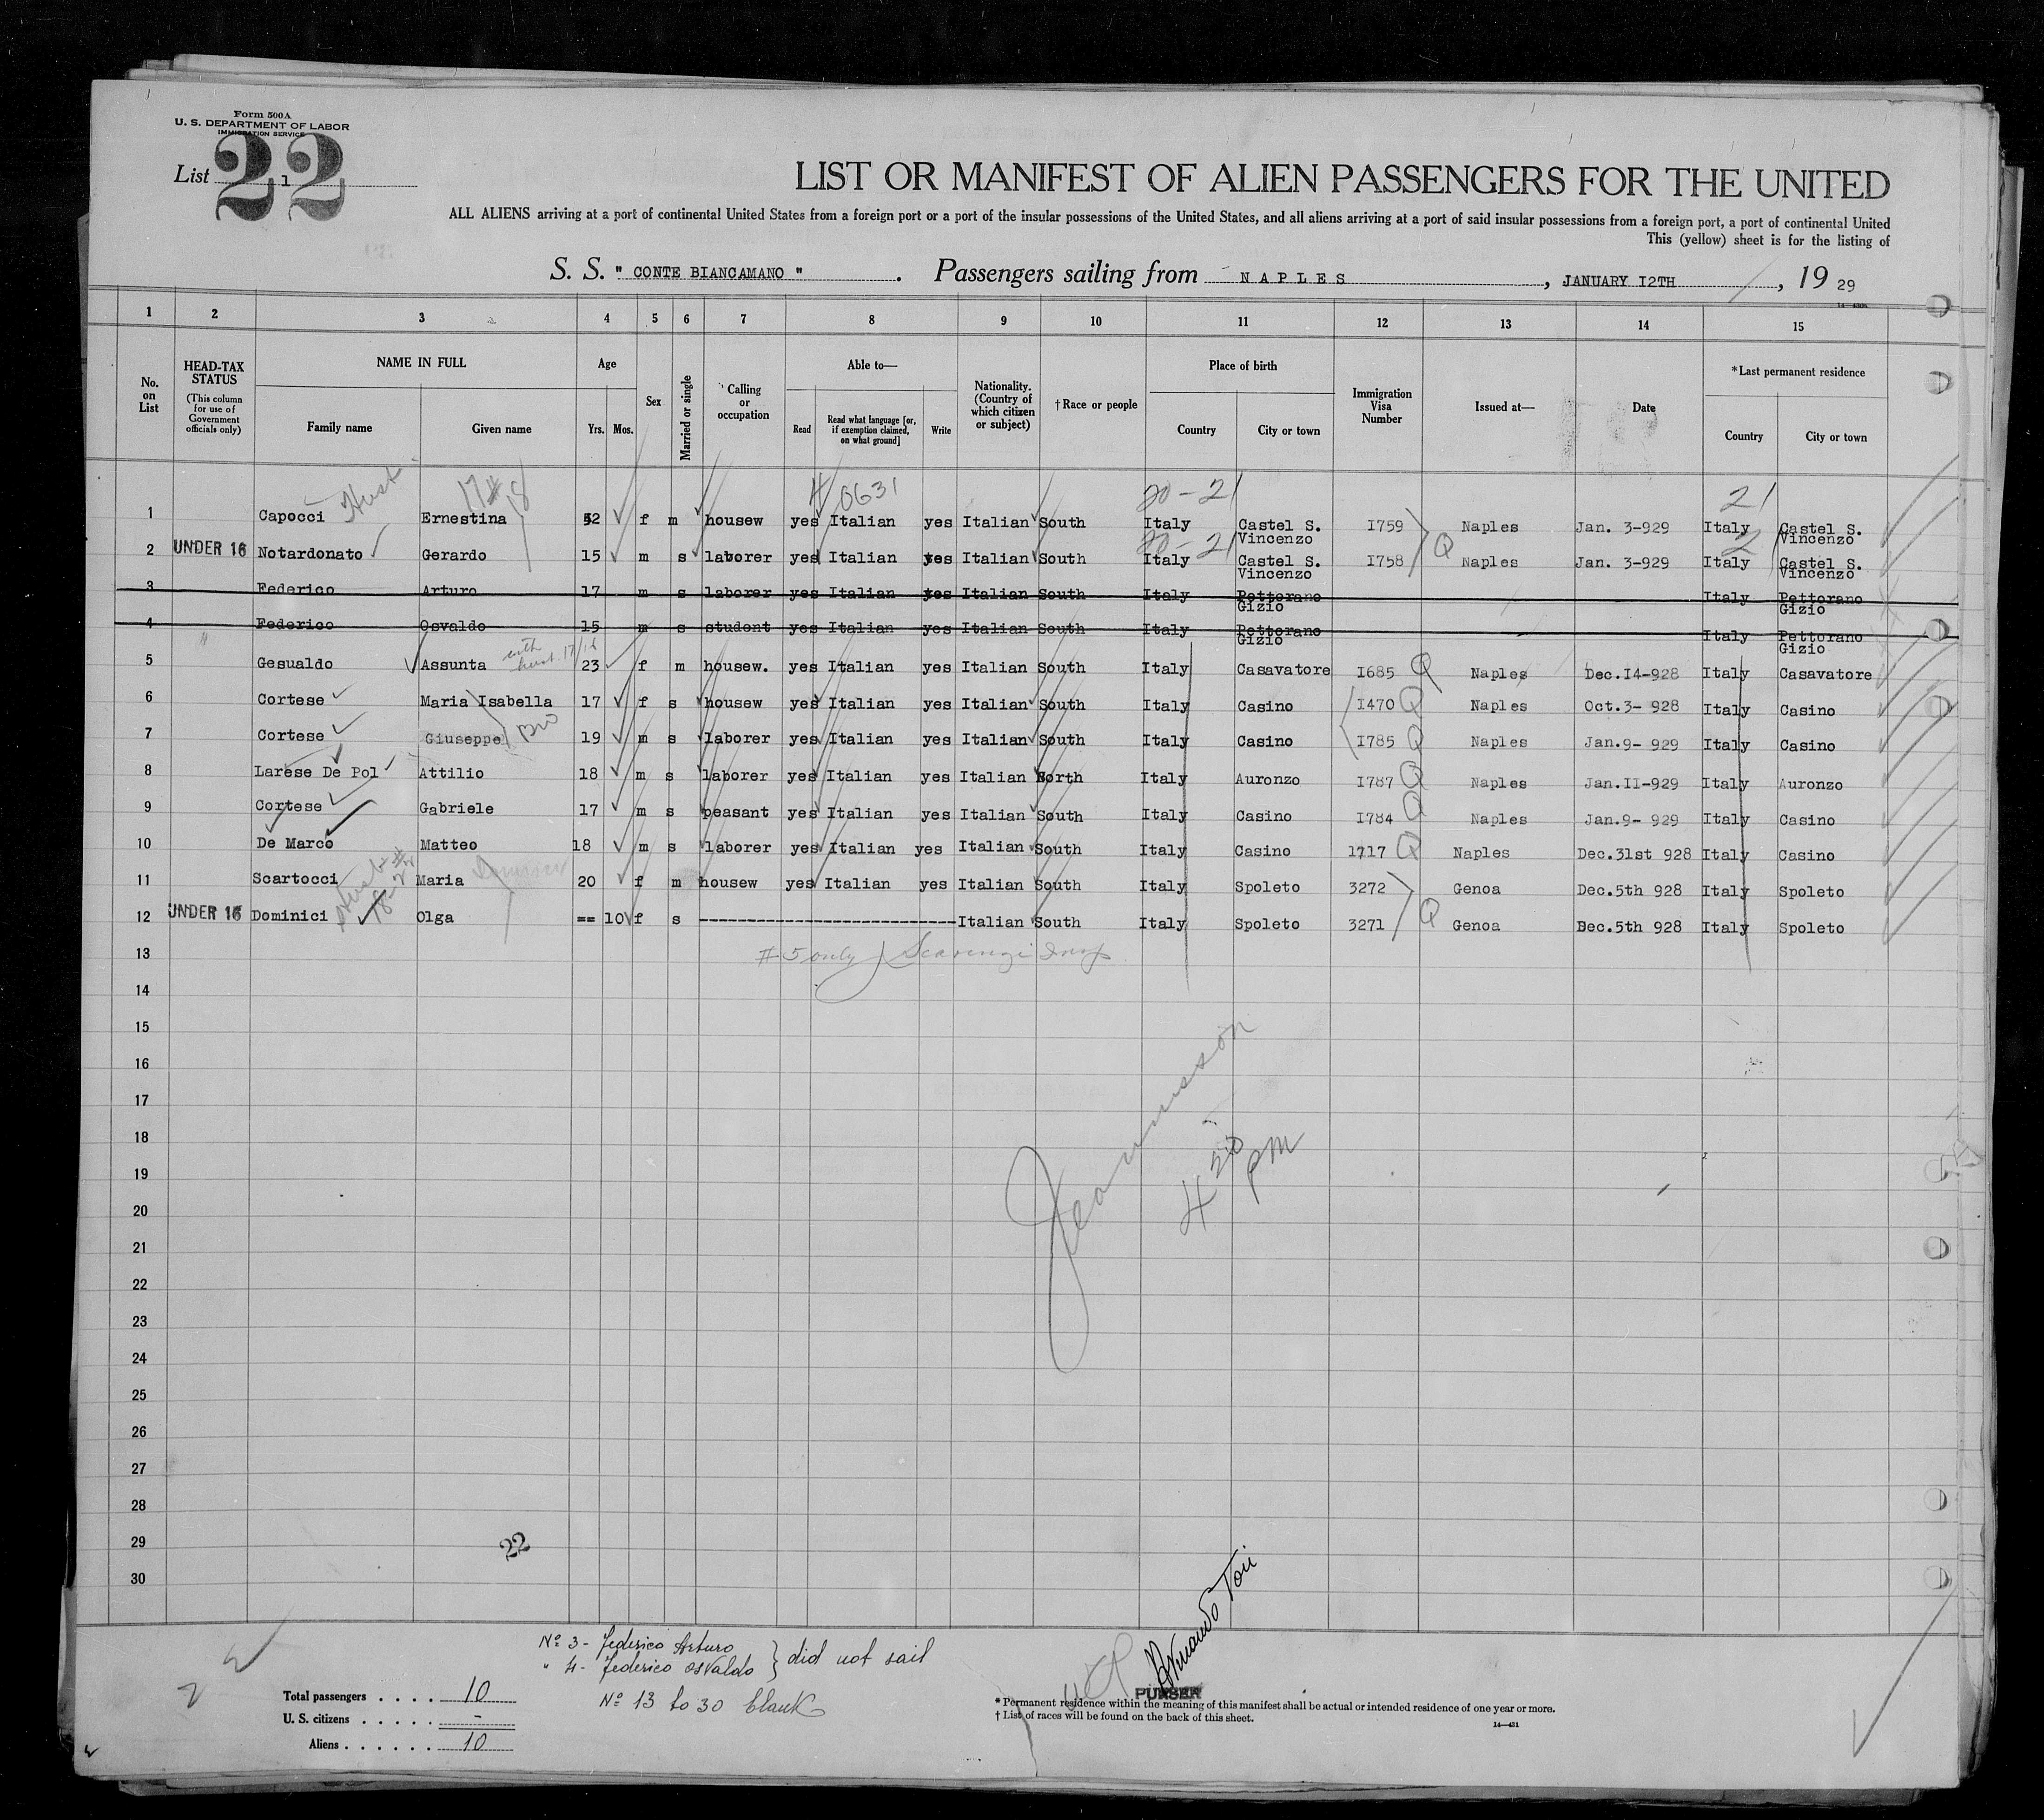 Form 500A
U. S. DEPARTMENT OF LABOR
IMMIGRATION SERVICE
List 1
22
LIST OR MANIFEST OF ALIEN PASSENGERS FOR THE UNITED
ALL ALIENS arriving at a port of continental United States from a foreign port or a port of the insular possessions of the United States, and all aliens arriving at a port of said insular possessions from a foreign port, a port of continental United
This (yellow) sheet is for the listing of
S. S. " CONTE BIANCAMANO ". Passengers sailing from NAPLES, JANUARY I2TH, 19 29
1 2 3 4 5 6 7 8 9 10 11 12 13 14 15
No. on List
HEAD-TAX STATUS
(This column for use of Government officials only)
NAME IN FULL
Family name Given name
Age
Yrs. Mos.
Sex
Married or single
Calling or occupation
Able to—
Read
Read what language [or, if exemption claimed, on what ground]
Write
Nationality. (Country of which citizen or subject)
†Race or people
Place of birth
Country City or town
Immigration Visa Number
Issued at—
Date
*Last permanent residence
Country City or town
0631 20-21 21
1 Capocci Ernestina 52 f m housew yes Italian yes Italian South Italy Castel S. Vincenzo I759 Naples Jan. 3-929 Italy Castel S. Vincenzo
20-21
2 UNDER 16 Notardonato Gerardo 15 m s laborer yes Italian yes Italian South Italy Castel S. Vincenzo I758 Q Naples Jan. 3-929 Italy Castel S. Vincenzo
3 Federico Arturo 17 m s laborer yes Italian yes Italian South Italy Pettorano Gizio Italy Pettorano Gizio
4 Federico Osvaldo 15 m s student yes Italian yes Italian South Italy Pettorano Gizio Italy Pettorano Gizio
5 Gesualdo Assunta 23 f m housew. yes Italian yes Italian South Italy Casavatore I685 Q Naples Dec.I4-928 Italy Casavatore
6 Cortese Maria Isabella 17 f s housew yes Italian yes Italian South Italy Casino I470 Q Naples Oct.3- 928 Italy Casino
7 Cortese Giuseppe bro 19 m s laborer yes Italian yes Italian South Italy Casino I785 Q Naples Jan.9- 929 Italy Casino
8 Larese De Pol Attilio 18 m s laborer yes Italian yes Italian North Italy Auronzo I787 Q Naples Jan.II-929 Italy Auronzo
9 Cortese Gabriele 17 m s peasant yes Italian yes Italian South Italy Casino I784 Q Naples Jan.9- 929 Italy Casino
10 De Marco Matteo 18 m s laborer yes Italian yes Italian South Italy Casino 1717 Q Naples Dec.31st 928 Italy Casino
11 Scartocci Maria 20 f m housew yes Italian yes Italian South Italy Spoleto 3272 Genoa Dec.5th 928 Italy Spoleto
12 UNDER 16 Dominici Olga == 10 f s ---------------------------- Italian South Italy Spoleto 3271 Q Genoa Dec.5th 928 Italy Spoleto
13 # 5 only
14
15
16
17
18
19 4 30 PM
20
21
22
23
24
25
26
27
28
29 22
30
Nº 3 - Federico Arturo
" 4 - Federico Osvaldo } did not sail
Nº 13 to 30 blank
Total passengers . . . . 10
U. S. citizens . . . . . -
Aliens . . . . . . 10
PURSER
* Permanent residence within the meaning of this manifest shall be actual or intended residence of one year or more.
† List of races will be found on the back of this sheet.
14—431